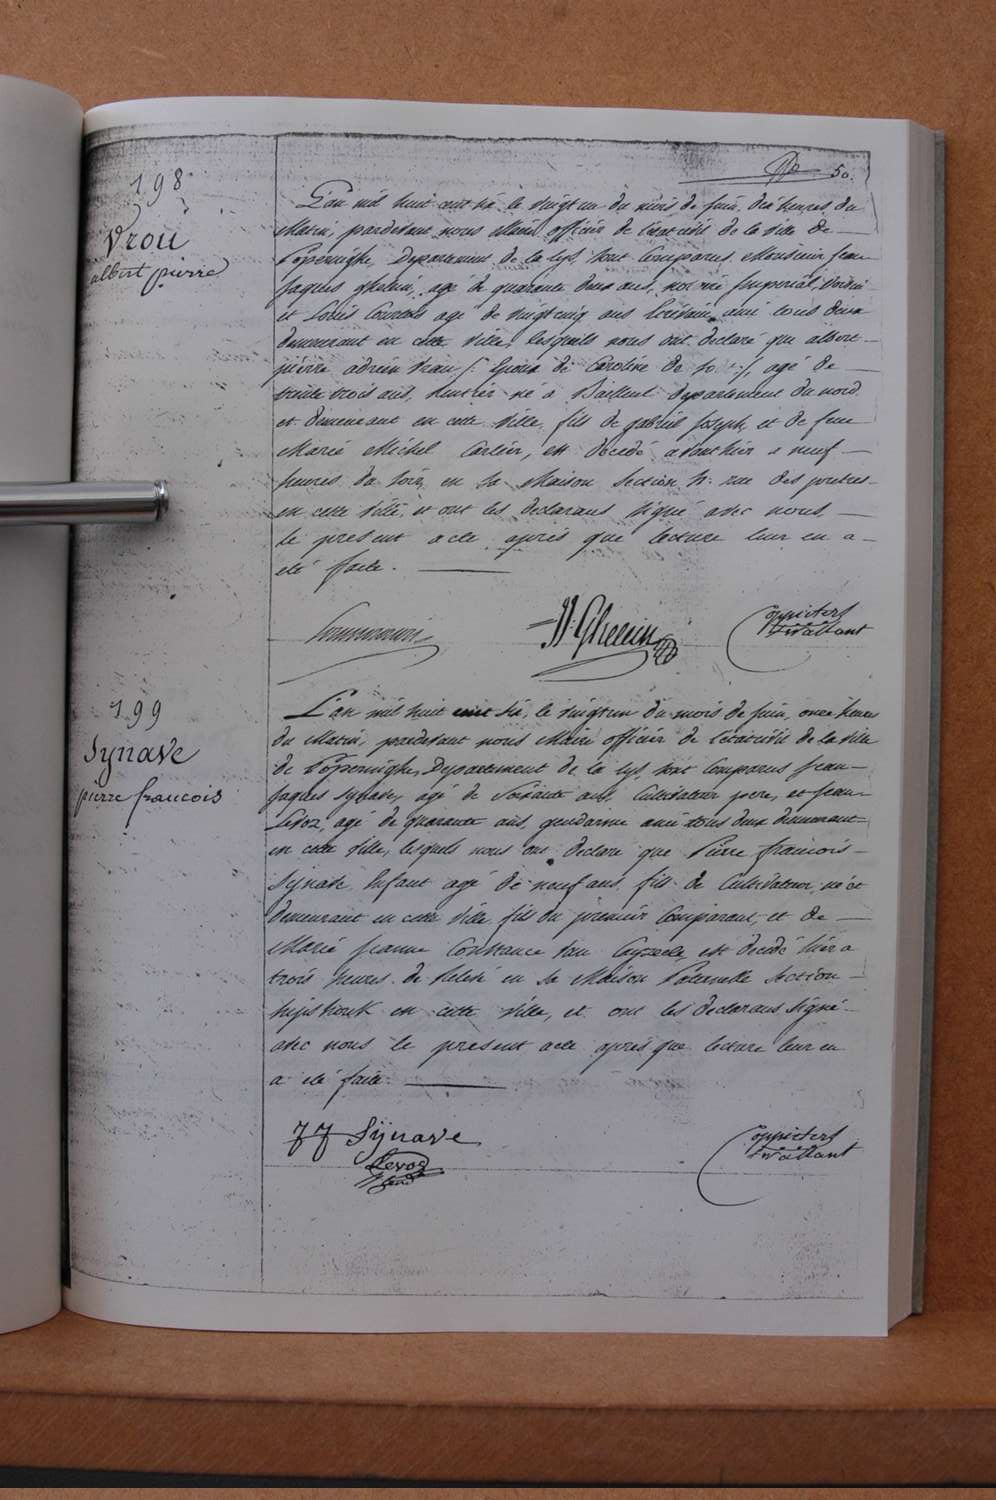 50.
198
Vrou
albert pierre
L'an mil huit cent six le vingt un du mois de juin, dix heures du
Matin, pardevant nous Maire officier de l'etat civil de la ville de
Poperinghe, Departement de la lys, sont Comparus Monsieur jean
jaques ghelein, agé de quarante deux ans, Imperial,
et Louis agé de vingt cinq ans Ecrivain, ami tous deux
demeurant en cette ville, lesquels nous ont declaré que albert
pierre adrien Vrau /: Epoux de Caroline de :/, agé de
trente trois ans, rentier né a Bailleul departement du nord
et demeurant en cette ville, fils de gabriel joseph, et de feue
Marie Michel Carlier, est decedé avant hier a neuf
heures du soir, en sa Maison Section rue des pretres
en cette ville, et ont les declarans signé avec nous
le present acte apres que lecture leur en a
eté faite.
JJ. Ghelein
Coppieters
t'wallant
199
Synave
pierre francois
L'an mil huit cent six, le vingt un du mois de juin, onze heures
du Matin, pardevant nous Maire officier de l'etat civil de la ville
de Poperinghe, Departement de la lys, sont Comparus jean
jaques Synave, agé de soixante ans, Cultivateur pere, et jean
Levoz, agé de quarante ans, gendarme ami tous deux demeurant
en cette ville, lesquels nous ont declaré que Pierre francois
Synave Enfant agé de neuf ans, fils de Cultivateur, né et
demeurant en cette ville, fils du premier Comparant, et de
Marie jeanne Constance Van est decedé hier a
trois heures de relevé en sa Maison Paternelle Section
en cette ville, et ont les declarans signé
avec nous le present acte apres que lecture leur en
a eté faite.
JJ Sÿnave
Levoz
Coppieters
t'wallant